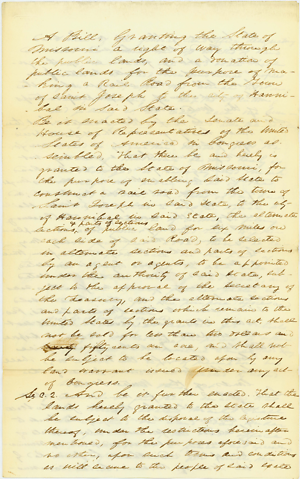 A Bill, Granting the State of
Missouri a right of way through
the public lands, and a donation of
public lands for the purpose of ma-
king a Rail Road from the Town
of Saint Joseph to the city of Hanni-
bal in Said State.
Be it enacted by the Senate and
House of Representatives of the United
States of America in Congress as-
sembled, That there be and hereby is
granted to the State of Missouri, for
the purpose of enabling said State to
construct a rail road from the town of
Saint Joseph in said State, to the city
of Hannibal in said State, the alternate
& parts of sections
sections of public land for six miles on
each side of said road; to be selected
in alternate sections and parts of sections
by an agent or agents, to be appointed
under the authority of said State, sub-
ject to the approval of the Secretary of
the Treasury, and the alternate sections
and parts of sections which remain to the
United States by the grant in this act shall
not be sold for less than two dollars and
fifty cents an acre, and shall not
be subject to be located upon by any
land warrant issued under any act
of Congress.
Sec. 2. And be it further enacted, That the
lands hereby granted to the State shall
be subject to the disposal of the Legislature
thereof, under the restrictions hereinafter
mentioned, for the purposes aforesaid and
no other, upon such terms and conditions
as will secure to the people of said State